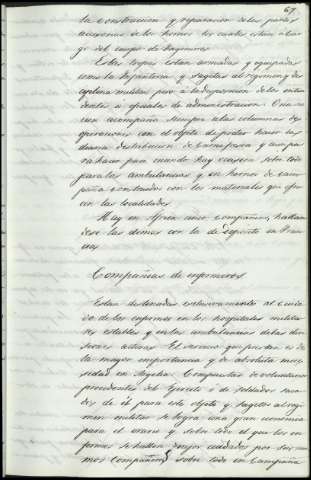 67
la construccion y reparacion de las partes
accesorias de los hornos los cuales estan á car
go del cuerpo de Ingenieros
Estas tropas estan armadas y equipadas
como la Infanteria y sugetas al regimen y dis
ciplina militar pero á la disposicion de los inten
dentes ú oficiales de administracion. Una sec
cion acompaña siempre á las columnas de
operaciones con el objeto de poder hacer la
diaria distribucion de carne fresca y aun pa
ra hacer pan cuando hay ocasion sobre todo
para las ambulancias y en hornos de cam
paña construidos con los materiales que ofre
cen las localidades
Hay en Africa cinco compañias, hallan
dose las demas con la de deposito en Fran
cia
Compañias de enfermeros
Estan destinadas exclusivamente al cuida
do de los enfermos en los hospitales milita
res, estables y en las ambulancias de las divi
siones activas. El servicio que prestan es de
la mayor importancia y de absoluta nece
sidad en Argelia. Compuestas de voluntarios
procedentes del Ejercito ó de soldados saca
dos de él para este objeto y sugetos al regi
men militar se logra una gran economia
para el erario y sobre todo el que los en
fermos se hallen mejor cuidados por sus mis
mos compañeros sobre todo en Campaña